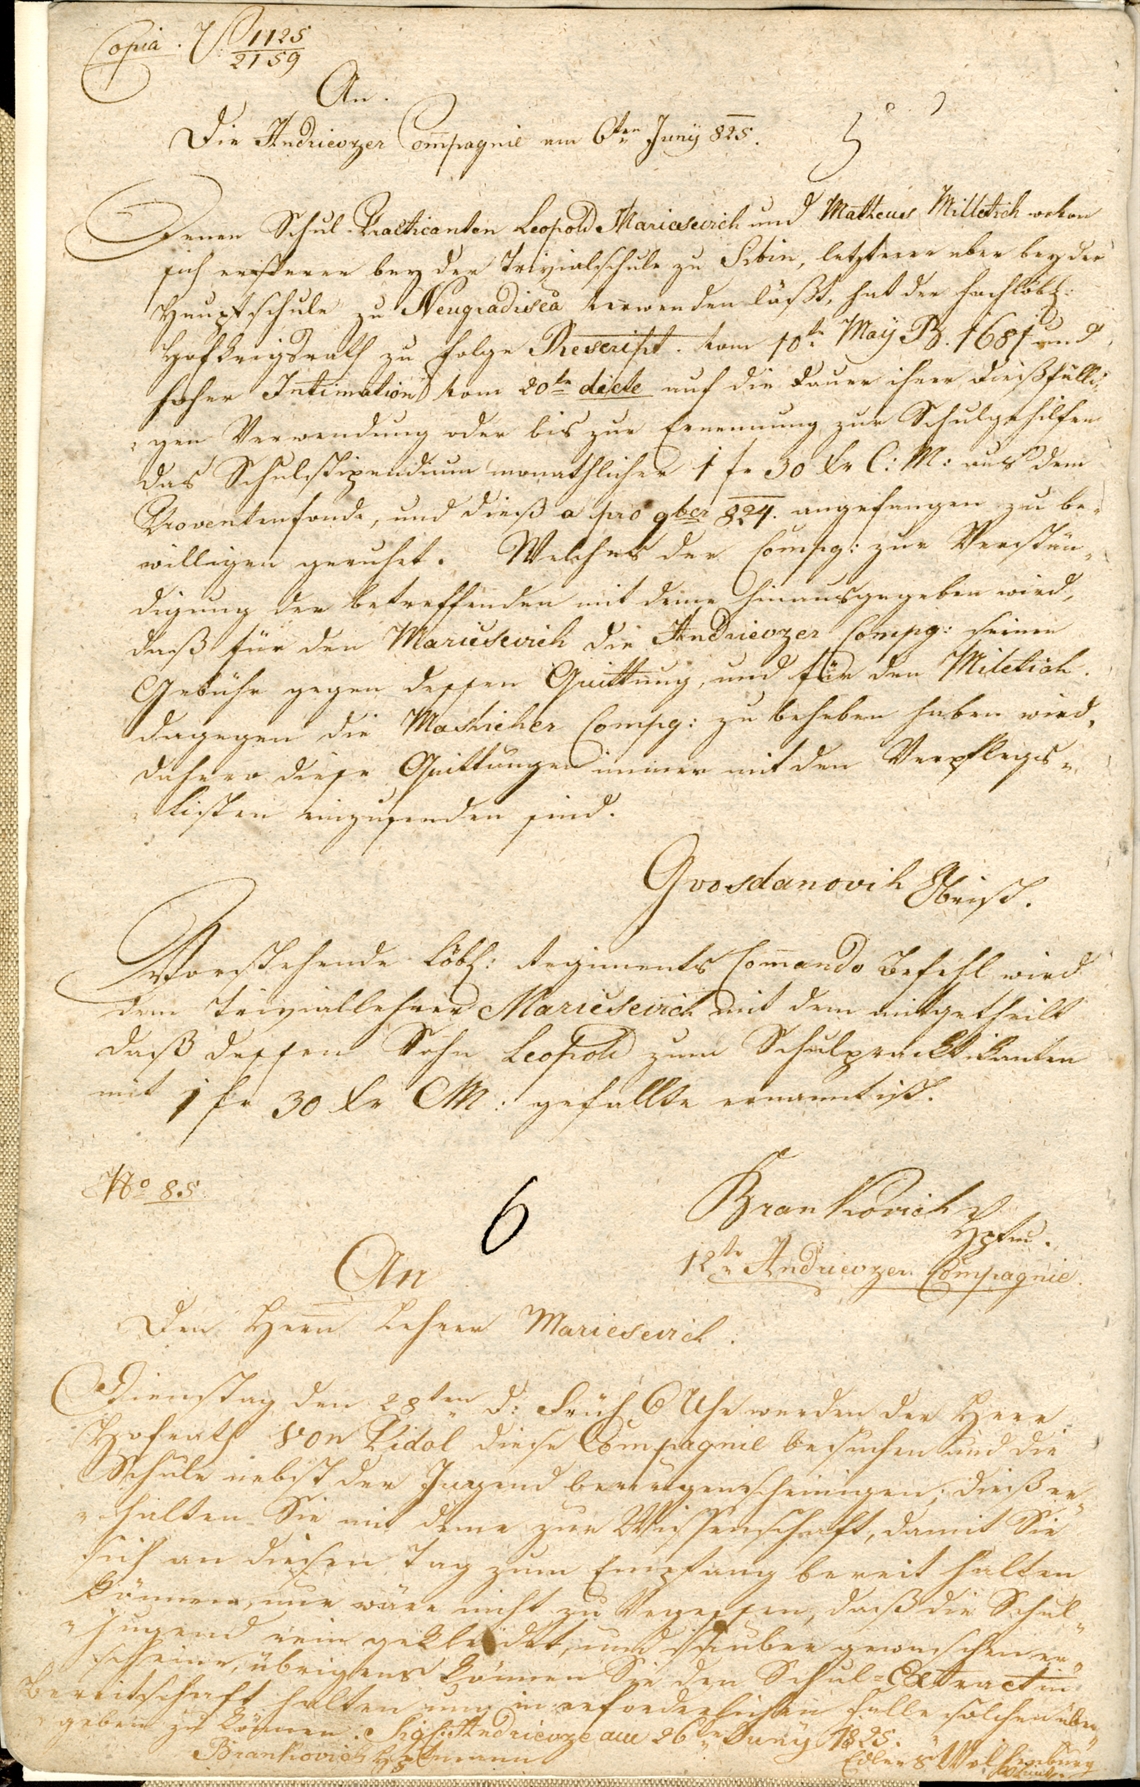 Copia. V 1125
2159
An.
Die Andrievzer Compagnie am 6ten Juny 825.
5
Denen Schul-Practicanten Leopold Mariesevich und Matheus Milletich wovon
sich ersterer bey der Trivialschule zu Sibin, letzterer aber bey der
Hauptschule zu Neugradisca verwenden läßt, hat der hochlöbl:
Hofkriegsrath zu folge Rescript. vom 10ten May B. 1681 und
hoher Intimation vom 20ten dicte auf die Dauer ihrer dießfälli-
gen Verwendung oder bis zur Ernennung zur Schulgehilfen
das Schulstipendium monathlicher 1 fr 30 kr C: M: aus dem
Proventenfonde, und dieß a pro 9ber 824. angefangen zu be-
willigen geruhet. Welches der Compg: zur Verstän-
digung der betreffenden mit deme hinausgegeben wird,
daß für den Mariesevich die Andrievzer Compg: seine
Gebühr gegen dessen Quittung, und für den Miletich
dagegen die Maschicher Compg: zu beheben haben wird,
daher diese Quittungen immer mit den Verpflegs-
Listen einzusenden sind.
Gvosdanovih Obrist.
Vorstehende Löbl: Regiments Commando Befehl wird
dem Triviallehrer Mariesevich mit dem mitgetheilt
daß dessen Sohn Leopold zum Schulpracktikanten
mit 1 fr 30 kr CM: gefallte ernannt ist.
No 85
6
Brankovich
Hptm.
12te Andrievzer Compagnie.
An
Den Herrn Lehrer Mariesevich.
Dienstag den 28ten d: Früh 6 Uhr werden der Herr
Hofrath von Lidol diese Compagnie besuchen und die
Schule nebst der Jugend beaugenscheinigen; dieß er-
halten Sie mit deme zur Wissenschaft, damit Sie
sich an diesen Tag zum Empfang bereit halten
können, nur wäre nicht zu Vergessen, daß die Schul-
jugend rein gekleidet, und sauber gewaschen er-
scheine, übrigens können Sie den Schul-Extract in
Bereitschaft halten um in erforderlichen Falle solchen über-
geben zu können. Andrievze am 26ten Juny 1825.
Brankovich Hauptmann